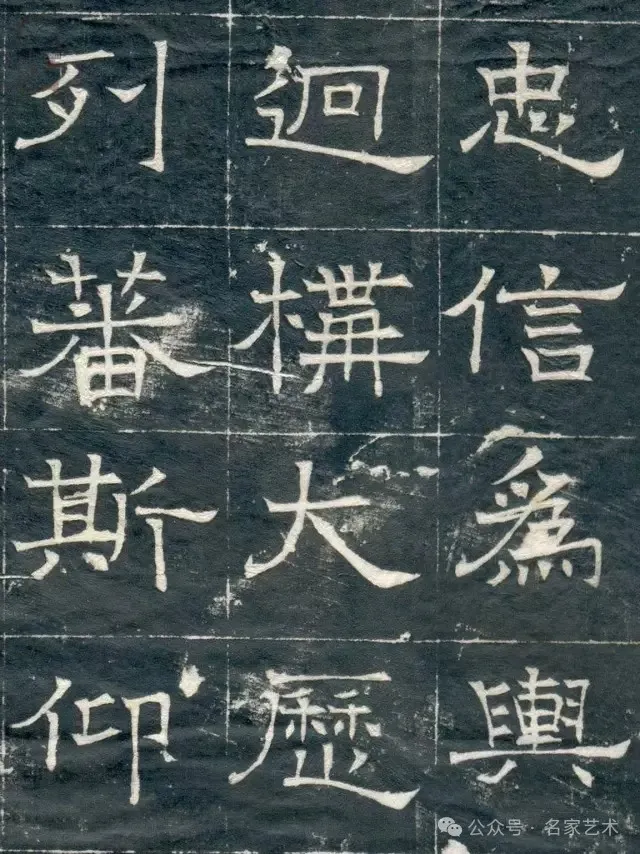 忠信爲輿
迴構大歷
列蕃斯仰
公众号·名家艺术